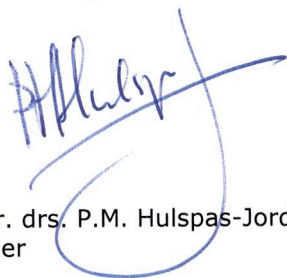 r. drs. P.M. Hulspas-Jord
er